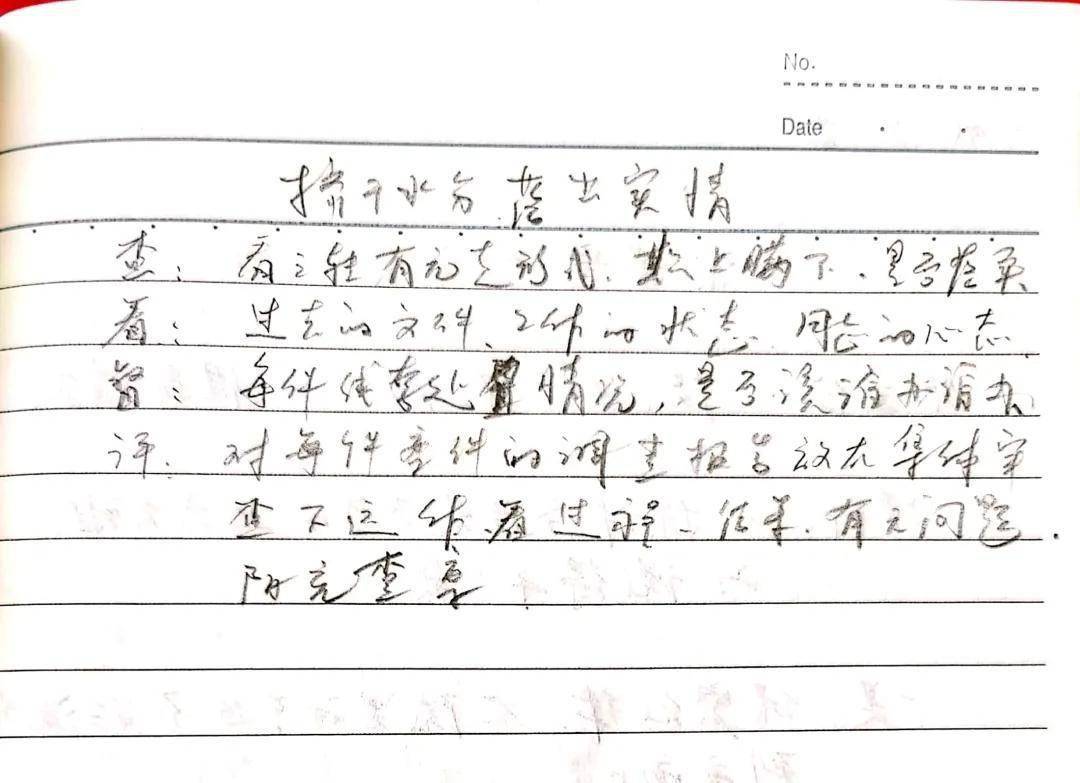 No.
Date
挤干水分 露出实情
查: 看 有无走形式、欺上瞒下、是否落实
看: 过去的文件、工作的状态、同志的心态
督: 每件线索处置情况,是否该谁办谁办
评: 对每件查件的调查报告放在集体审
查下运作、看过程、结果、有无问题.
阶 查